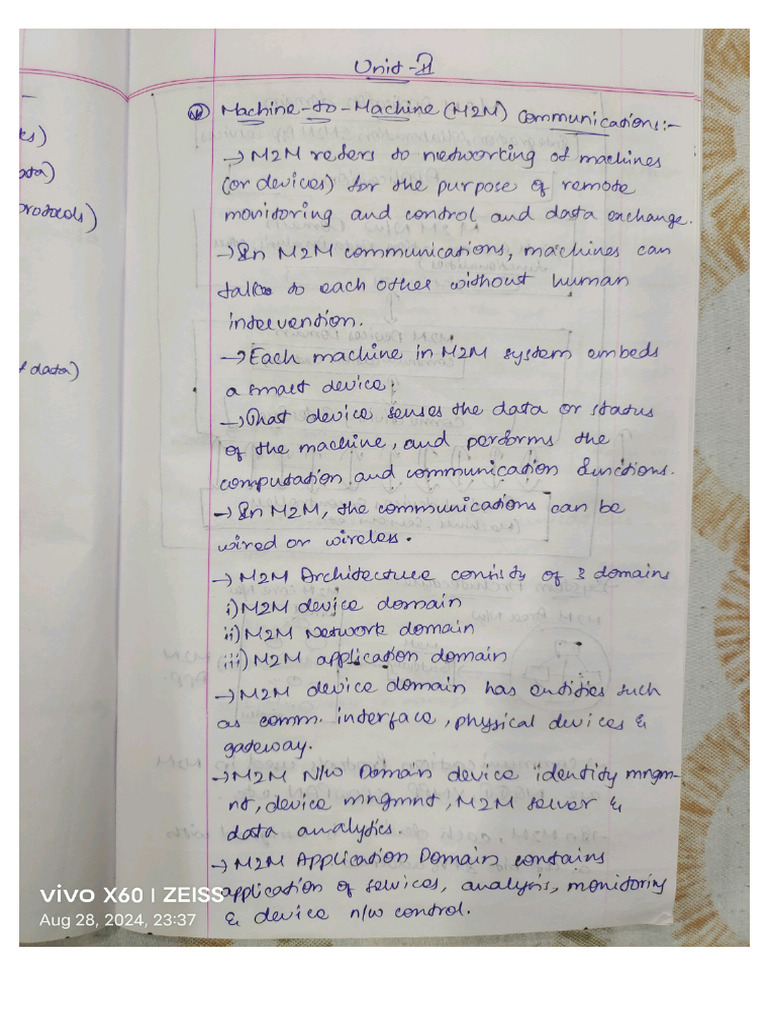 Unit-II
Machine-to-Machine (M2M) Communications:-
→ M2M refers to networking of machines
(or devices) for the purpose of remote
monitoring and control and data exchange.
→ In M2M communications, machines can
talk to each other without human
intervention.
→ Each machine in M2M system embeds
a smart device.
→ That device senses the data or status
of the machine, and performs the
computation and communication functions.
→ In M2M, the communications can be
wired or wireless.
→ M2M Architecture consists of 3 domains
i) M2M device domain
ii) M2M Network domain
iii) M2M application domain
→ M2M device domain has entities such
as comm. interface, physical devices &
gateway.
→ M2M N/w Domain device identity mngm-
nt, device mngmnt, M2M server &
data analytics.
→ M2M Application Domain contains
application of services, analysis, monitoring
& device n/w control.
protocols)
data)
vivo X60 | ZEISS
Aug 28, 2024, 23:37